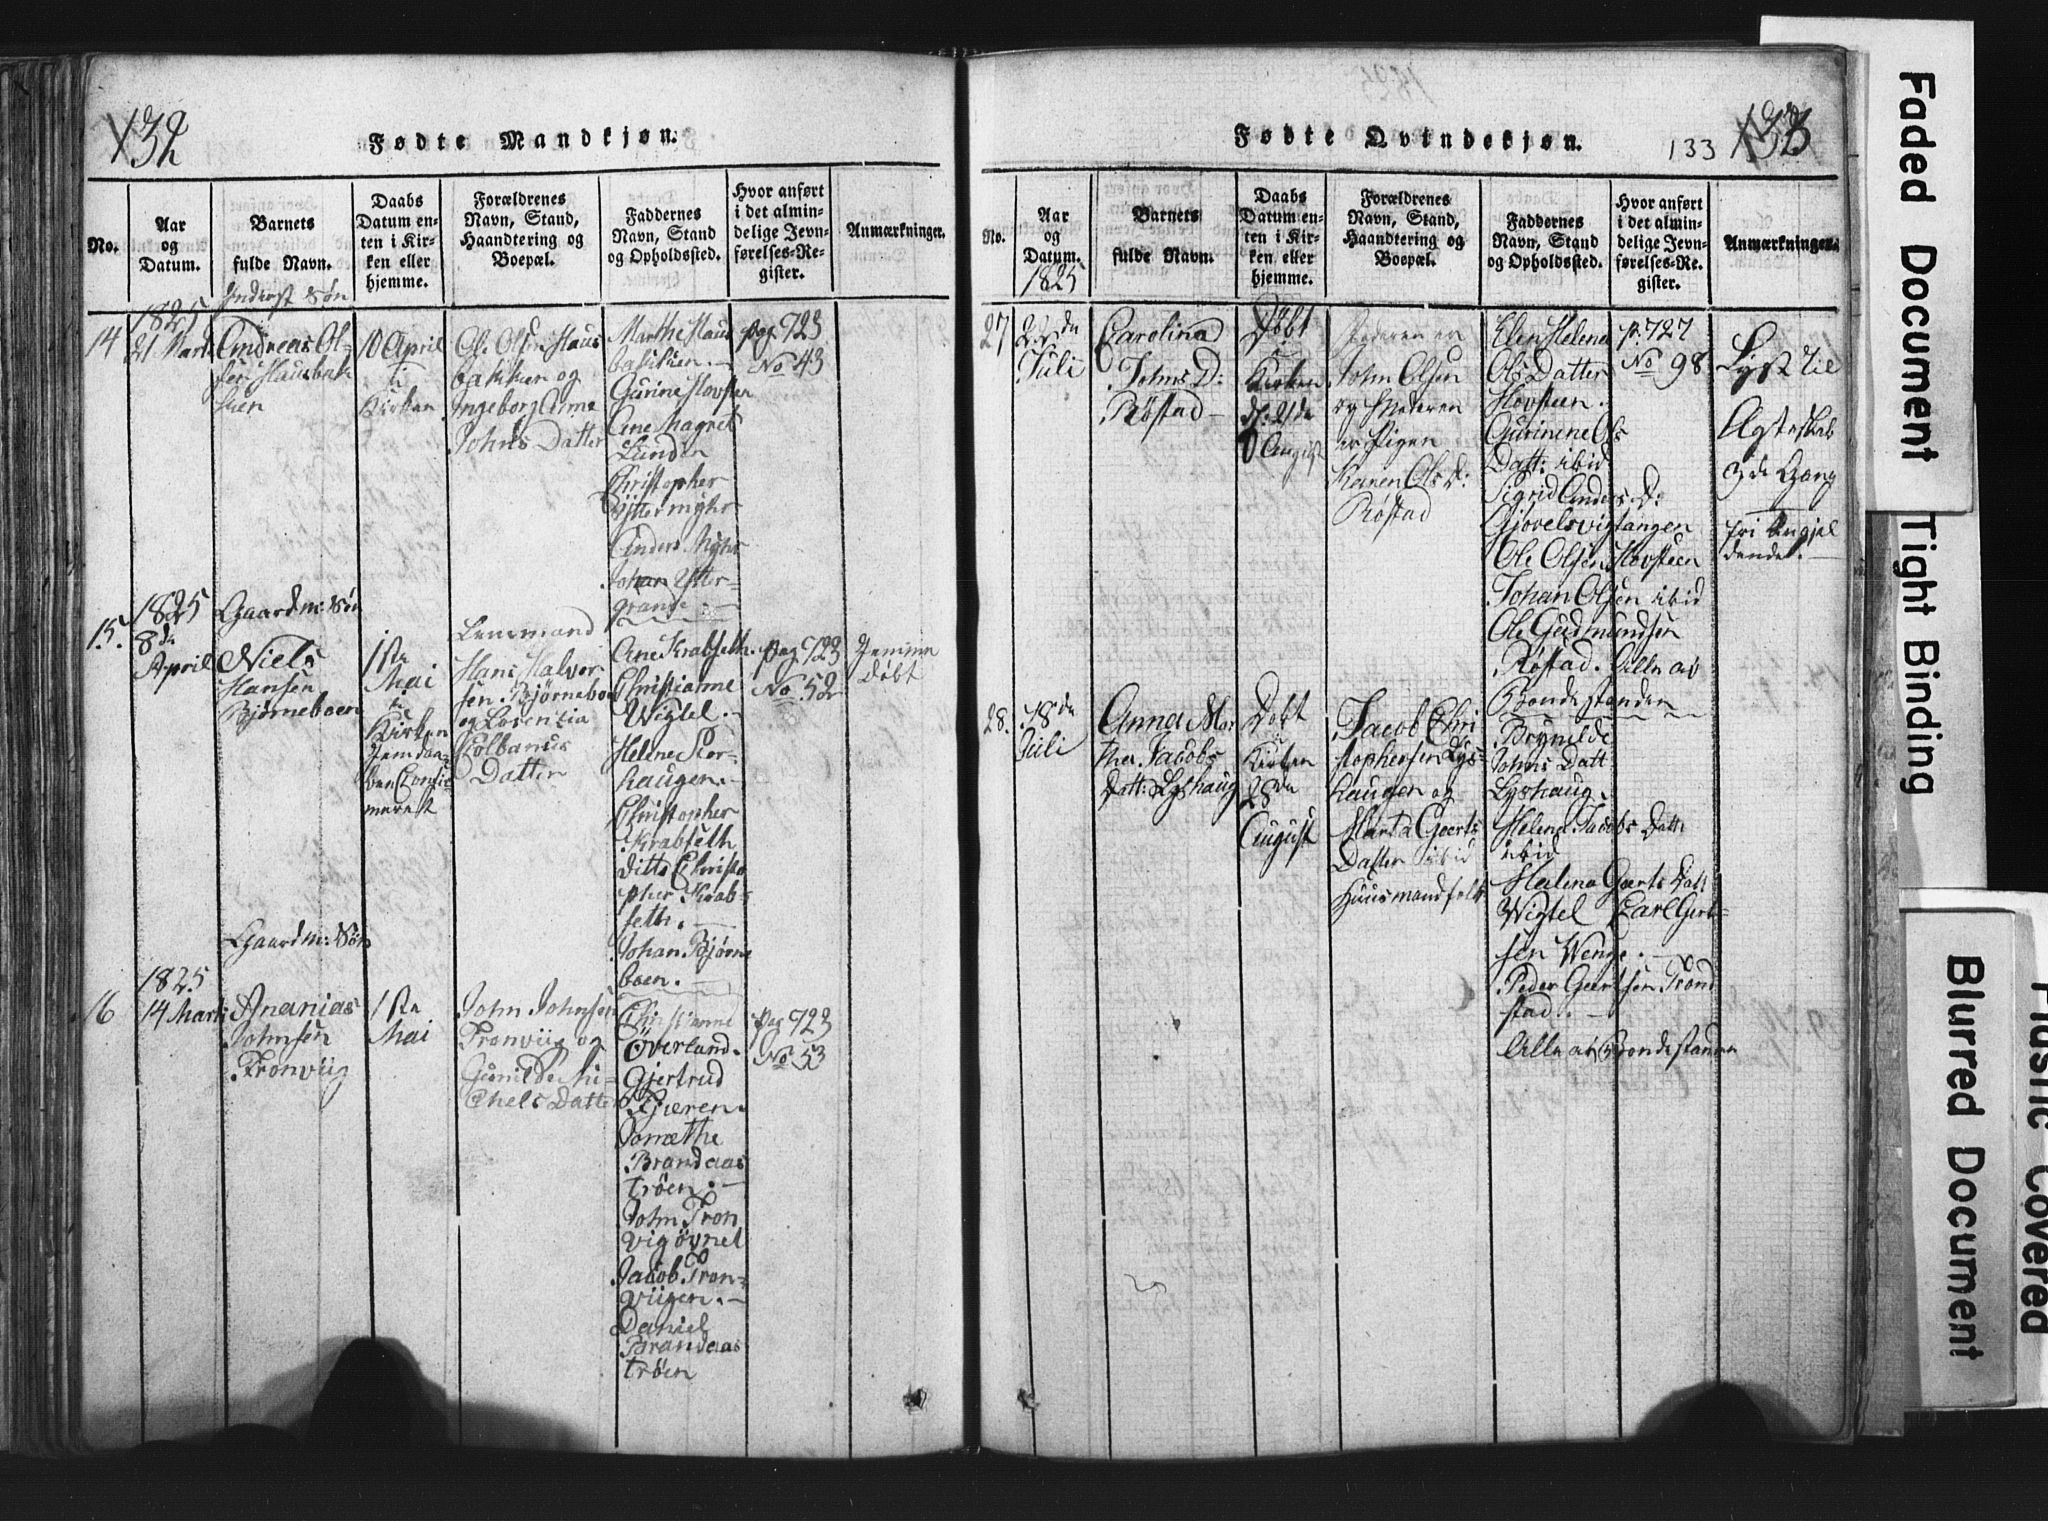 132
Fødte Mandkjøn.
No.
Aar
og
Datum.
Barnets
fulde Navn.
Daabs
Datum en-
ten i Kir-
ken eller
hjemme.
Forældrenes
Navn, Stand,
Haandtering og
Boepæl.
Faddernes
Navn, Stand
og Opholdssted.
Hvor anført
i det almin-
delige Jevn-
førelses-Re-
gister.
Anmærkninger.
Inderst Søn
14
1825
21 Marts
Andreas Ol-
sen Hausbak
ken
10 April
i
Kirken
Ole Olsen Haus
bakken og
Ingeborg Anne
Johns Datter
Marthe Haus
bakken.
Gurine Hovsten
Ane Magret
Lunden
Christopher
Yttermyhr
Anders Myhr
Johan Ytter-
grande.
pag 723
No 43
15.
1825
8de
April
Gaardm: Søn
Niels
Hansen
Bjørneboen
1ste
Mai
i
Kirken
Hjemdaa-
ben Confir-
meret
Lensmand
Hans Halvor
sen Bjørneboe
og Lorentia
Kolbanus
Datter
Ane Krabseth.
Christianne
Wigtel.
Helene Kor-
haugen.
Christopher
Krabseth
ditto Christo
pher Krab-
seth.
Johan Bjørne
boen.
pag 723
No 52
Hjemme
døbt
Gaardm: Søn
16
1825
14 Marts
Ananias
Johnsen
Tronviig
1ste
Mai
John Johnsen
Tronviig og
Gunilde Mi-
chels Datter
Christianne
Överland.
Gjertrud
Kjæren.
Tomethe
Brandaas
tröen.
John Tron
vig övnel
Jacob Tron-
viigen.
Daniel
Brandaas
tröen
pag 723
No 53
Fødte Qvindekjøn.
133 133
No.
Aar
og
Datum.
1825
Barnets
fulde Navn.
Daabs
Datum en-
ten i Kir-
ken eller
hjemme.
Forældrenes
Navn, Stand,
Haandtering og
Boepæl.
Faddernes
Navn, Stand
og Opholdssted.
Hvor anført
i det almin-
delige Jevn-
førelses-Re-
gister.
Anmærkninger.
27
22de
Juli
Carolina
Johns D:
Røstad
Døbt
Kirken
d: 21de
August
Faderen er
John Olsen
og Moderen
er Pigen
Karen Ols D:
Røstad
Elen Helena
Ols Datter
Hovsteen.
Gurinene Ols
Datt: ibid
Sigrid Anders D:
Gjovelsvigtangen
Ole Olsen Hovsteen
Johan Olsen ibid
Ole Gudmundsen
Røstad. Alle av
Bondestanden
p. 727
No 98
Lyst til
Ægteskab
3de Gang
fri Angjel
dende.
28.
18de
Juli
Anna Mar
tha Jacobs
Datt: Lyshaug
Døbt
Kirken
28de
August
Jacob Chri
stophersen Lys-
haugen og
Marta Geerts
Datter ibid
Huusmandfolk
Brynilde
Johns Datt
Lyshaug.
Helena Jacobs Datt
ibid
Helena Geerts Datt
Wigtel Carl Gert-
sen Wenge.
Peder Geertsen Trond
stad.
Alle av Bondestanden
Faded Document
Tight Binding
Blurred Document
Plastic Covered